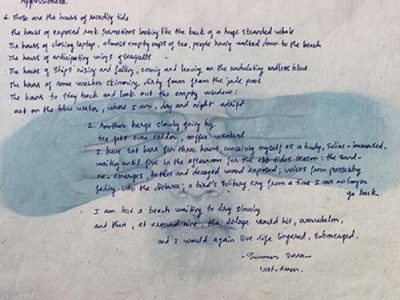 Appassionata.
1. These are the hours of receding tide
the hours of exposed rock formations looking like the back of a huge stranded whale
The hours of closing laptop, almost empty cups of tea, people having walked down to the beach
The hours of anticipating wings of seagulls
The hours of ships rising and falling, coming and leaving on the undulating endless blue
The hours of some worker skimming dirty foam from the jade pool
The hours to stay back and look out the empty window:
out on the blue water, where I am, day and night adrift
2. Another barge slowly going by
tea gets even colder, coffee weakened
I have sat here for three hours, conceiving myself as a body, saline - immersed,
waiting until five in the afternoon for the ebb tides season: the sand
re-emerges, bottles and decayed wood exposed; voices from passersby
fading into the distance; a bird's solitary cry from a time I can no longer
go back
I am but a beach waiting to dry slowly
and then, at around nine, the deluge would hit, overwhelm,
and I would again live life lingered, submerged.
- Summer 2020